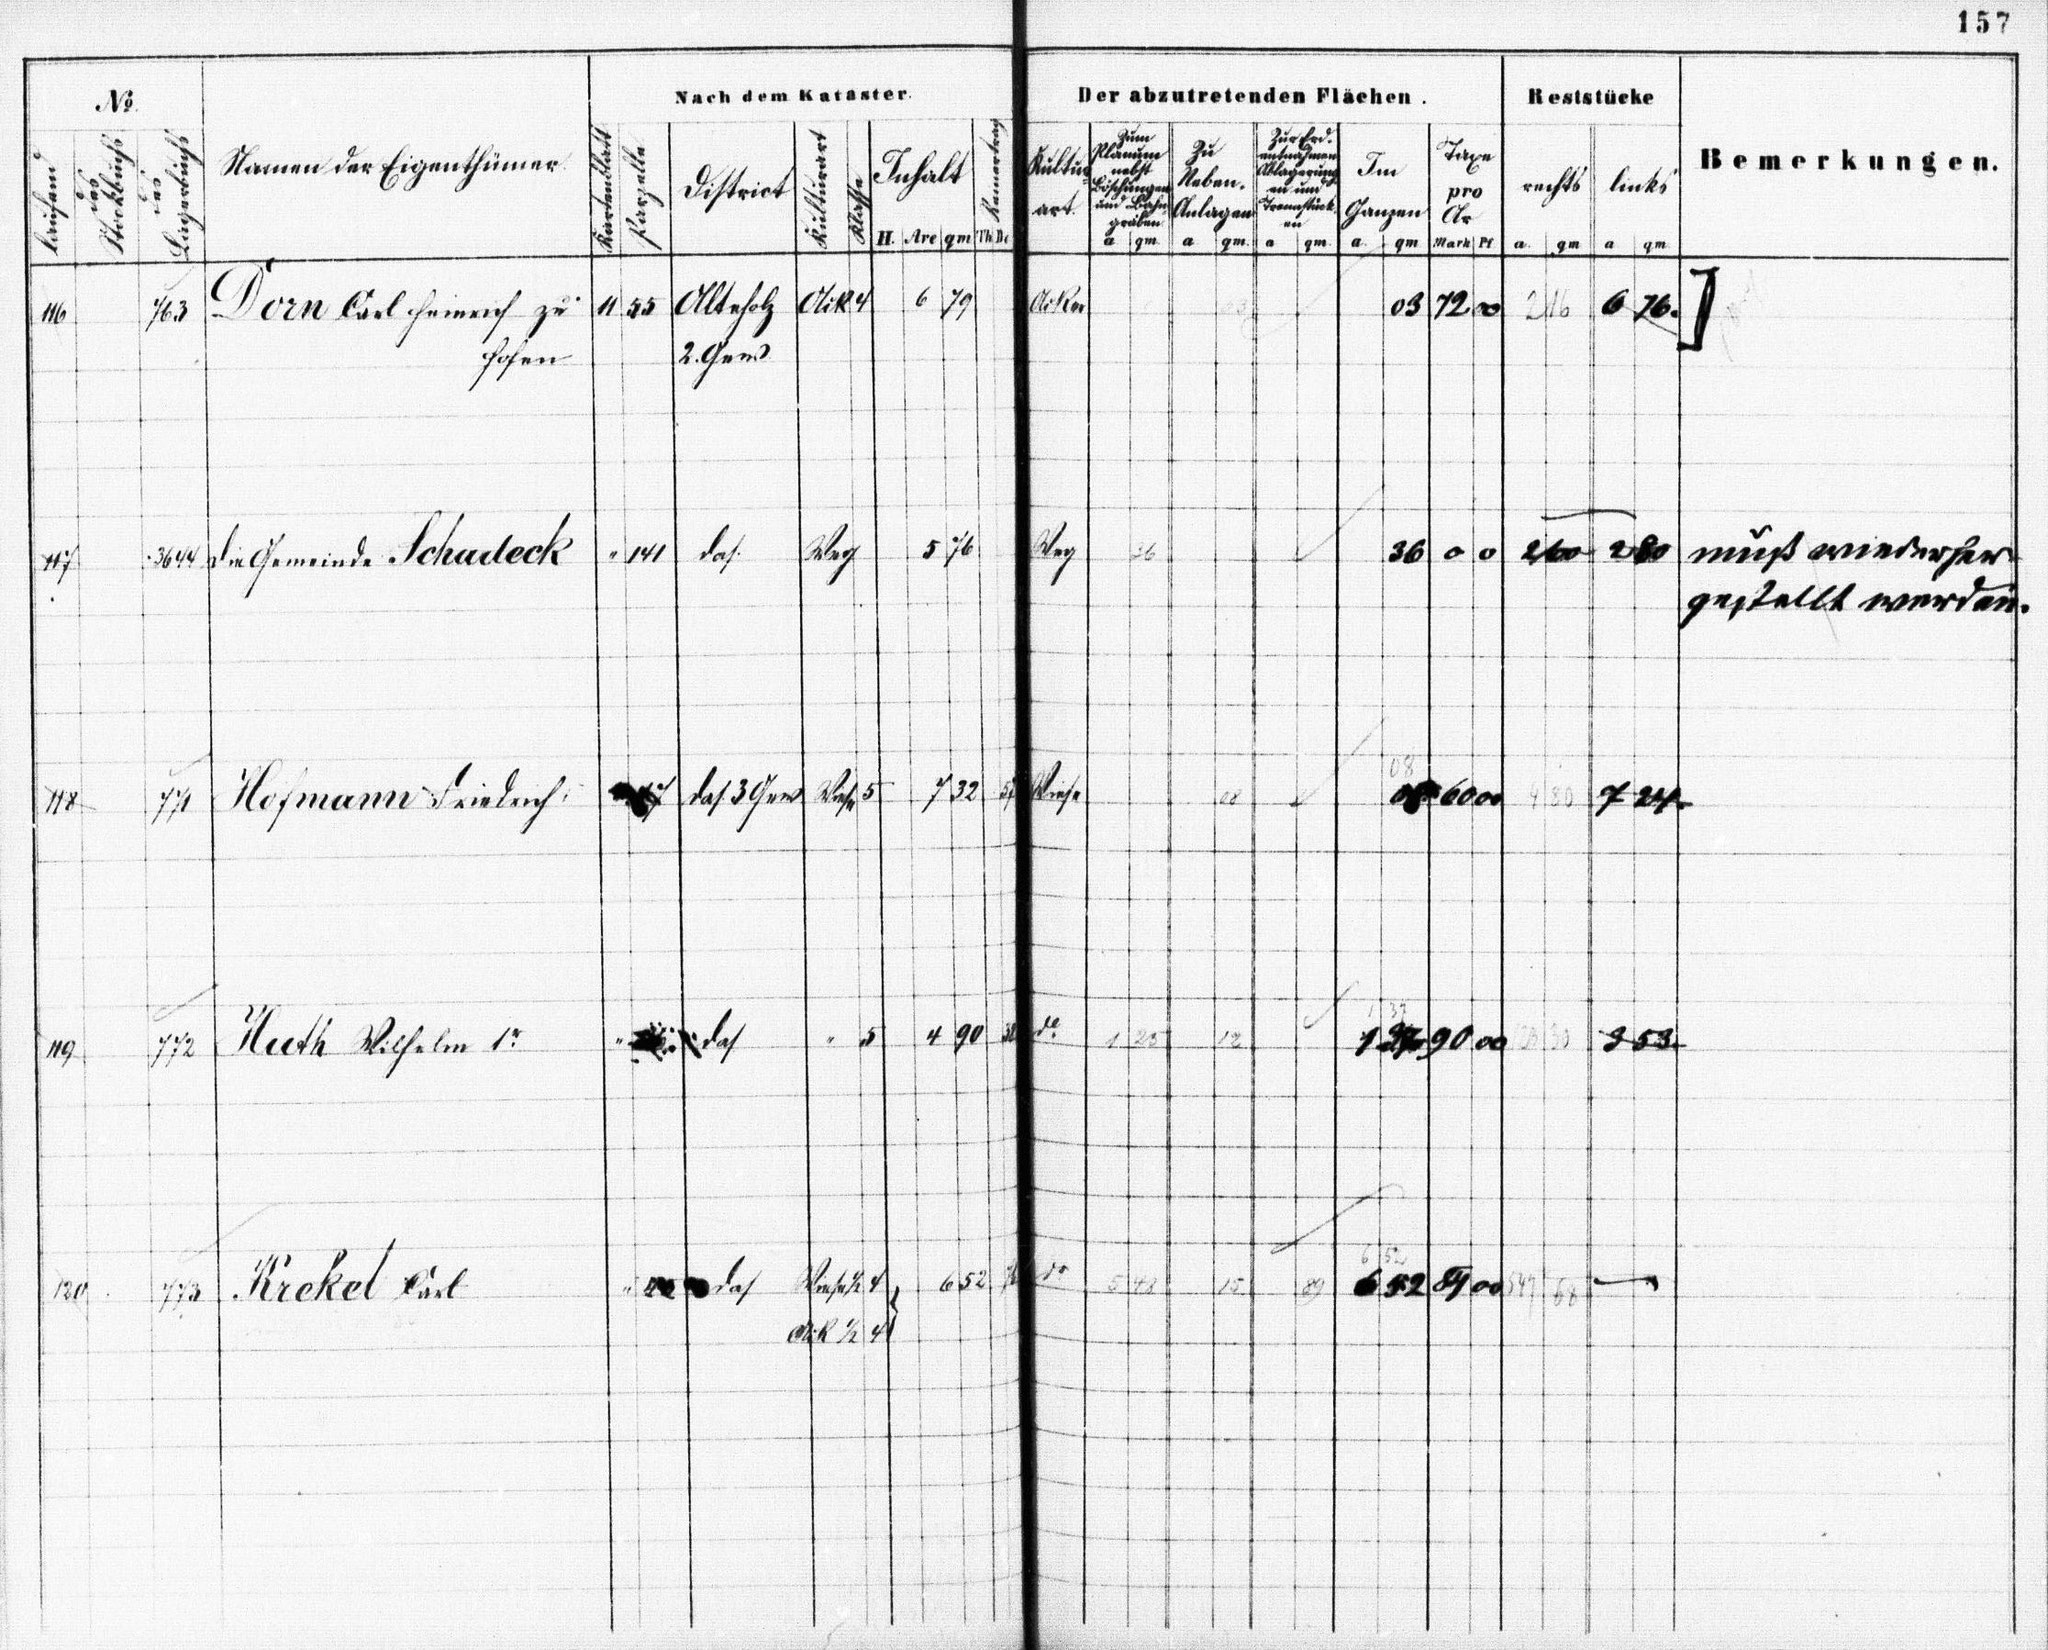 157
No. Nach dem Kataster. Der abzutretenden Flächen. Reststücke Bemerkungen.
Laufend des Stockbuchs des Lagerbuchs Namen der Eigenthümer. Kartenblatt Parzelle District Kulturart Klasse Inhalt Reinertrag
H. Are qm Th Dc
Kultur-
art.
Zum
Planum
nebst
Böschungen
und Bahn-
gräben
a qm
Zu
Neben-
Anlagen
a qm.
Zur Erd-
entnahmen
Ablagerung-
en und
Trennstück-
en
a qm.
Im
Ganzen
a. qm
Taxe
pro
Ar
Mark Pf
rechts links
a. qm a qm
116 763 Dorn Carl Heinrich zu 11 55 Alteholz Ack 4 6 79 Acker 03 72 00 2 16 6 76.
Hofen 2. Gew
117 3644 die Gemeinde Schadeck " 141 das. Weg 5 76 Weg 36 36 0 0 2 60 2 80 muß wiederher-
gestellt werden.
08
118 771 Hofmann Friedrich das. 3 Gew Wiese 5 7 32 Wiese 08 60 00 4 80 7 24.
1 37
119 772 Huth Wilhelm 1r " das " 5 4 90 do 1 25 12 1 37 90 00 3 53.
6 52
120 773 Krekel Carl " das Wiese ½ 4 6 52 do 5 48 15 89 6 52 84 00
Ack ½ 4